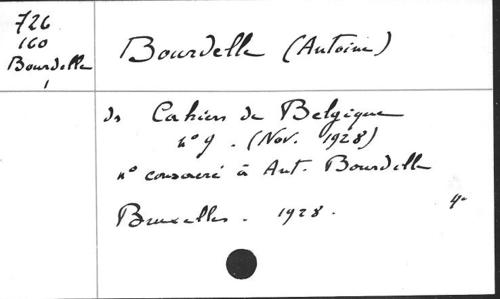 726
160
Bourdelle
1
Bourdelle (Antoine)
ds Cahiers de Belgique
n° 9. (Nov. 1928)
n° consacré à Ant. Bourdelle
Bruxelles. 1928. 4°